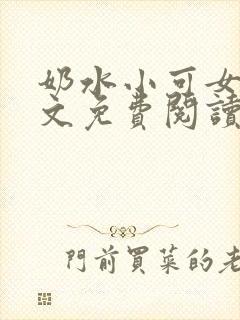 奶水小可女
文免費閱讀
門前買菜的老